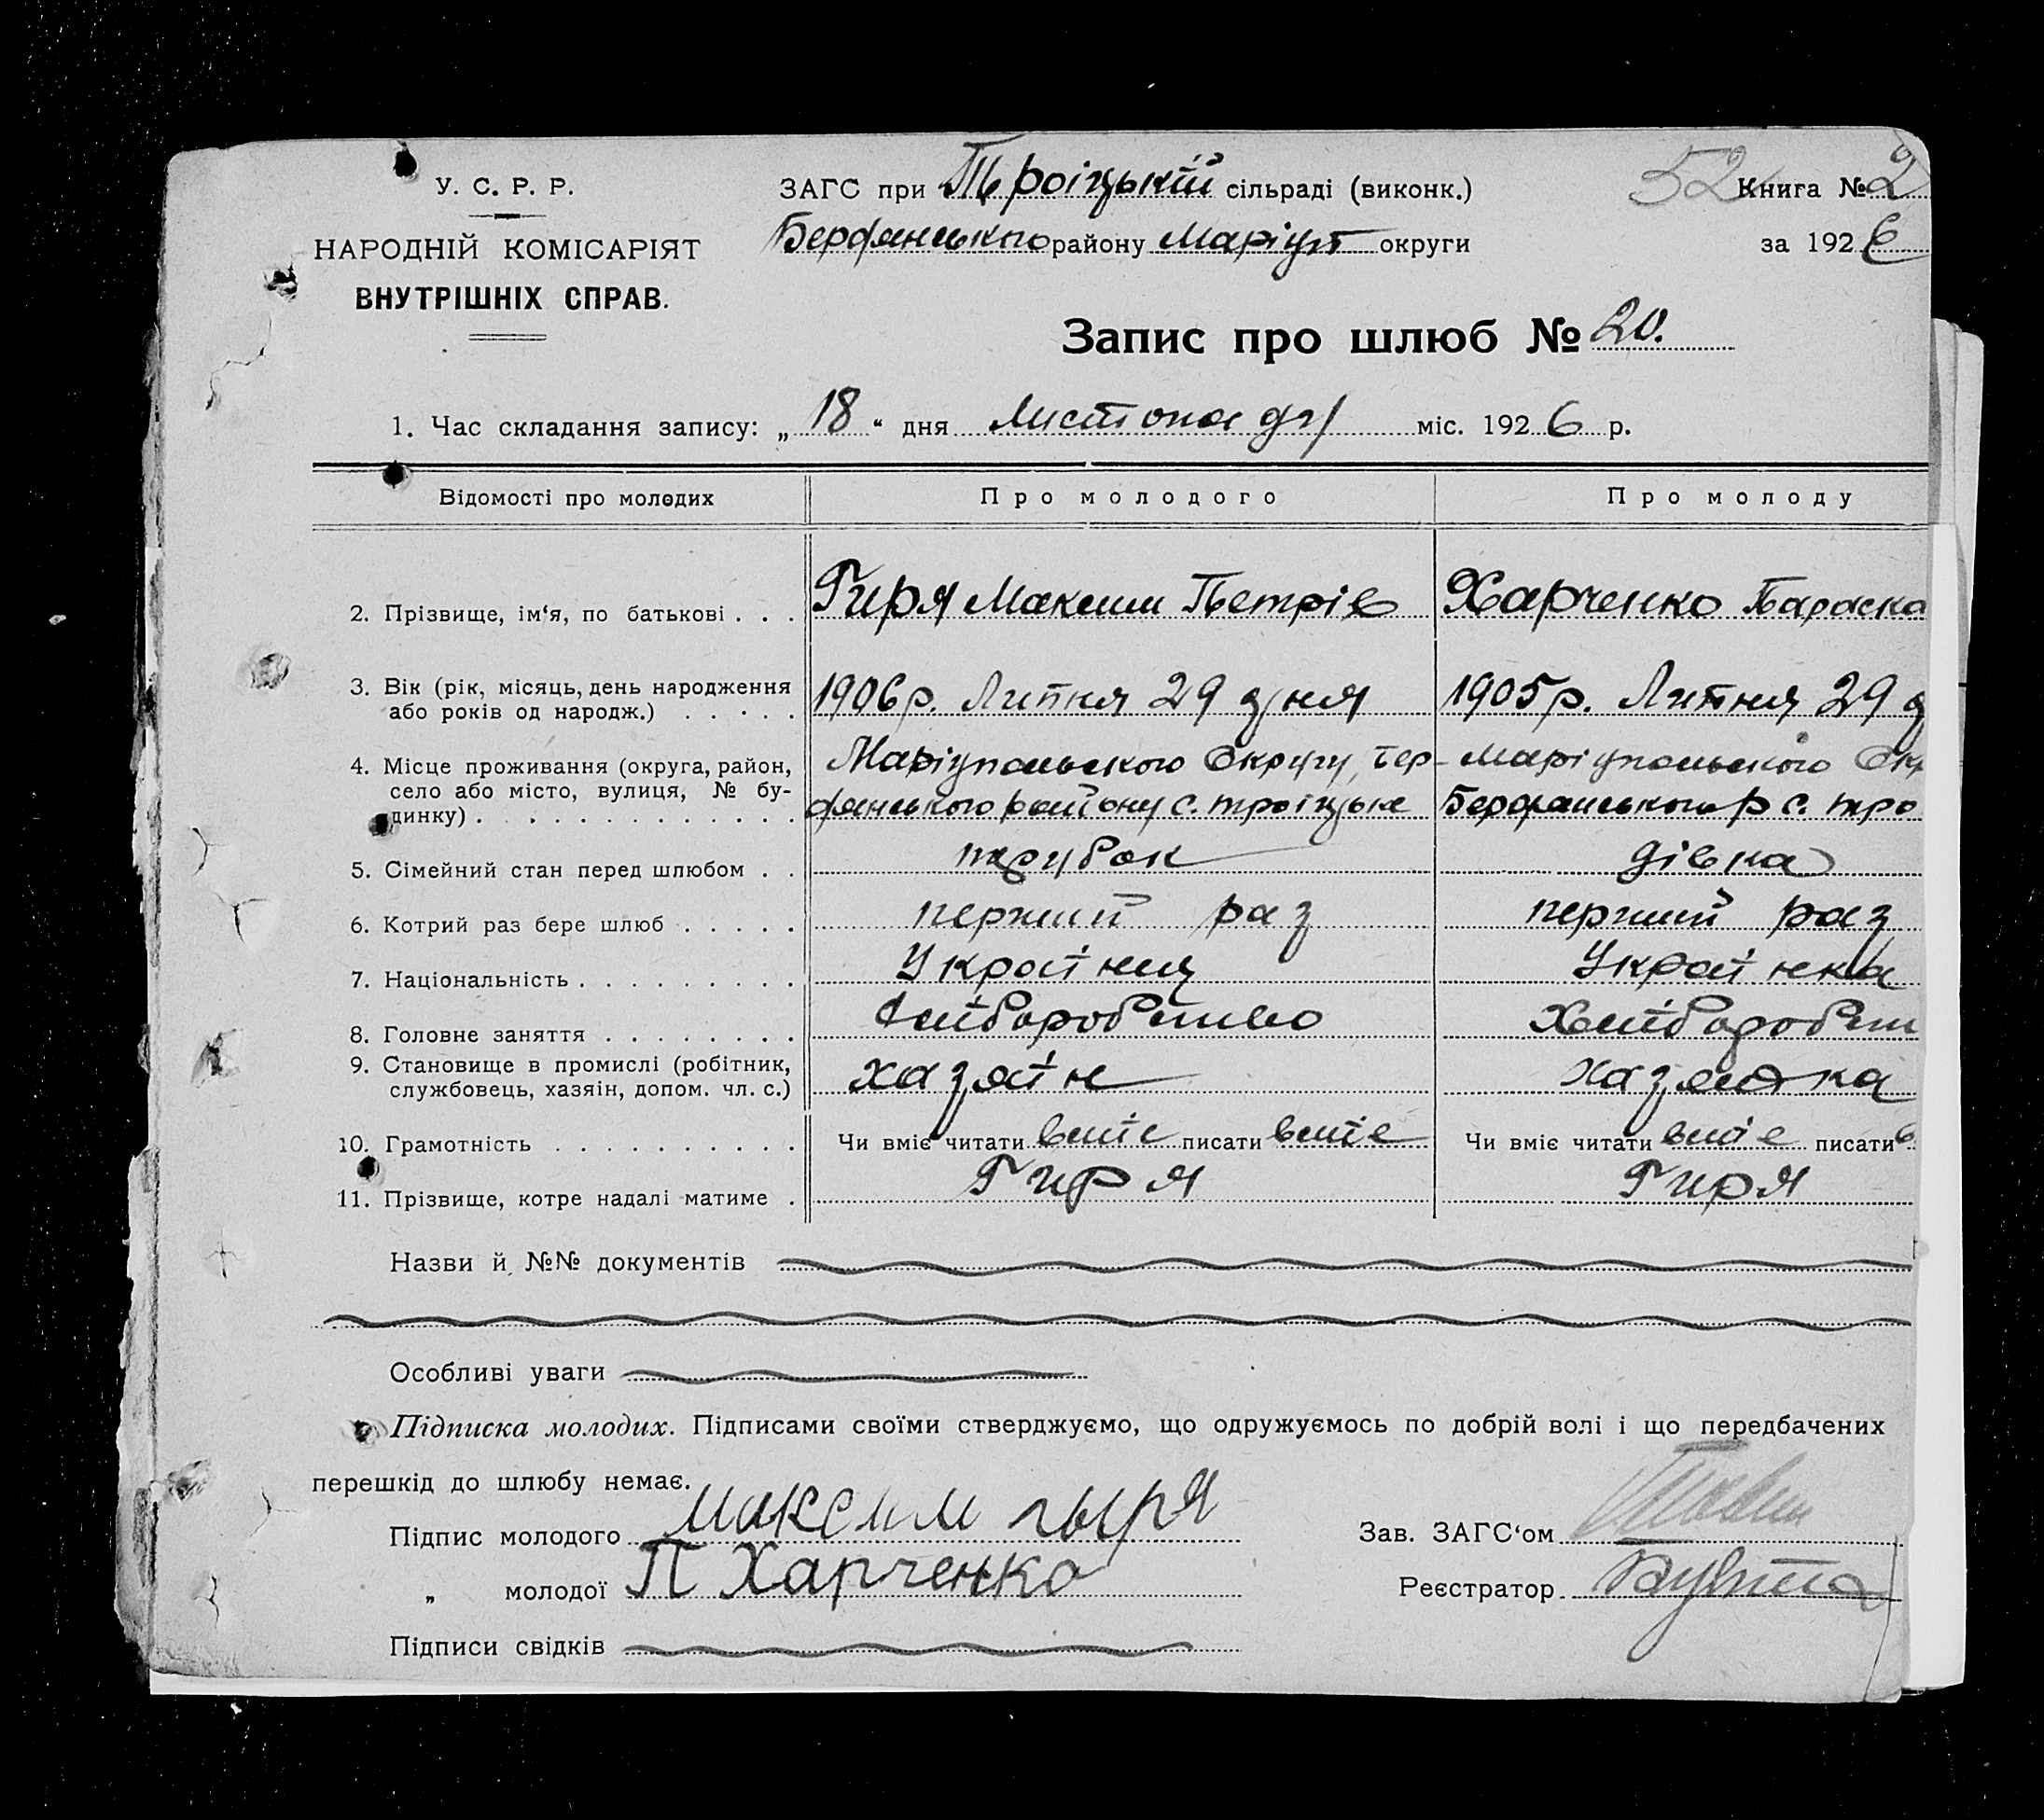 У. С. Р. Р.
НАРОДНІЙ КОМІСАРІЯТ
ВНУТРІШНІХ СПРАВ.
52
ЗАГС при Троіцькій сільраді (виконк.) Книга № 2
Бердянського району Маріуп округи за 1926
Запис про шлюб № 20.
1. Час складання запису: „18“ дня листопада міс. 1926 р.
Відомості про молодих Про молодого Про молоду
2. Прізвище, ім‘я, по батькові . . . Гиря Максим Петрів Харченко Параска
3. Вік (рік, місяць, день народження
або років од народж.) . . . . . 1906 р. Липня 29 дня 1905 р. Липня 29 д
4. Місце проживання (округа, район, Маріупольского Округу, Бер- Маріупольского Окр
село або місто, вулиця, № бу- дянського району с. Троіцьке Бердянського р с. Тро
динку) . . . . . . . . . . . . .
5. Сімейний стан перед шлюбом . . парубок дівка
6. Котрий раз бере шлюб . . . . . перший раз перший раз
7. Національність . . . . . . . . . Україниц Українка
8. Головне заняття . . . . . . . . Хліборобство Хлібороб
9. Становище в промислі (робітник,
службовець, хазяін, допом. чл. с.) хазяїн хазяйка
10. Грамотність . . . . . . . . . . Чи вміє читати вміє писати вміє Чи вміє читати вміє писати в
11. Прізвище, котре надалі матиме . Гиря Гиря
Назви й №№ документів
Особливі уваги
Підписка молодих. Підписами своїми стверджуємо, що одружуємось по добрій волі і що передбачених
перешкід до шлюбу немає.
Підпис молодого максим гыря Зав. ЗАГС‘ом
„ молодої П Харченко Реєстратор
Підписи свідків